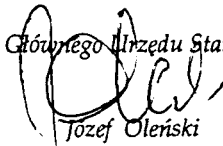 Głównego Urzędu Sta
Józef Oleński